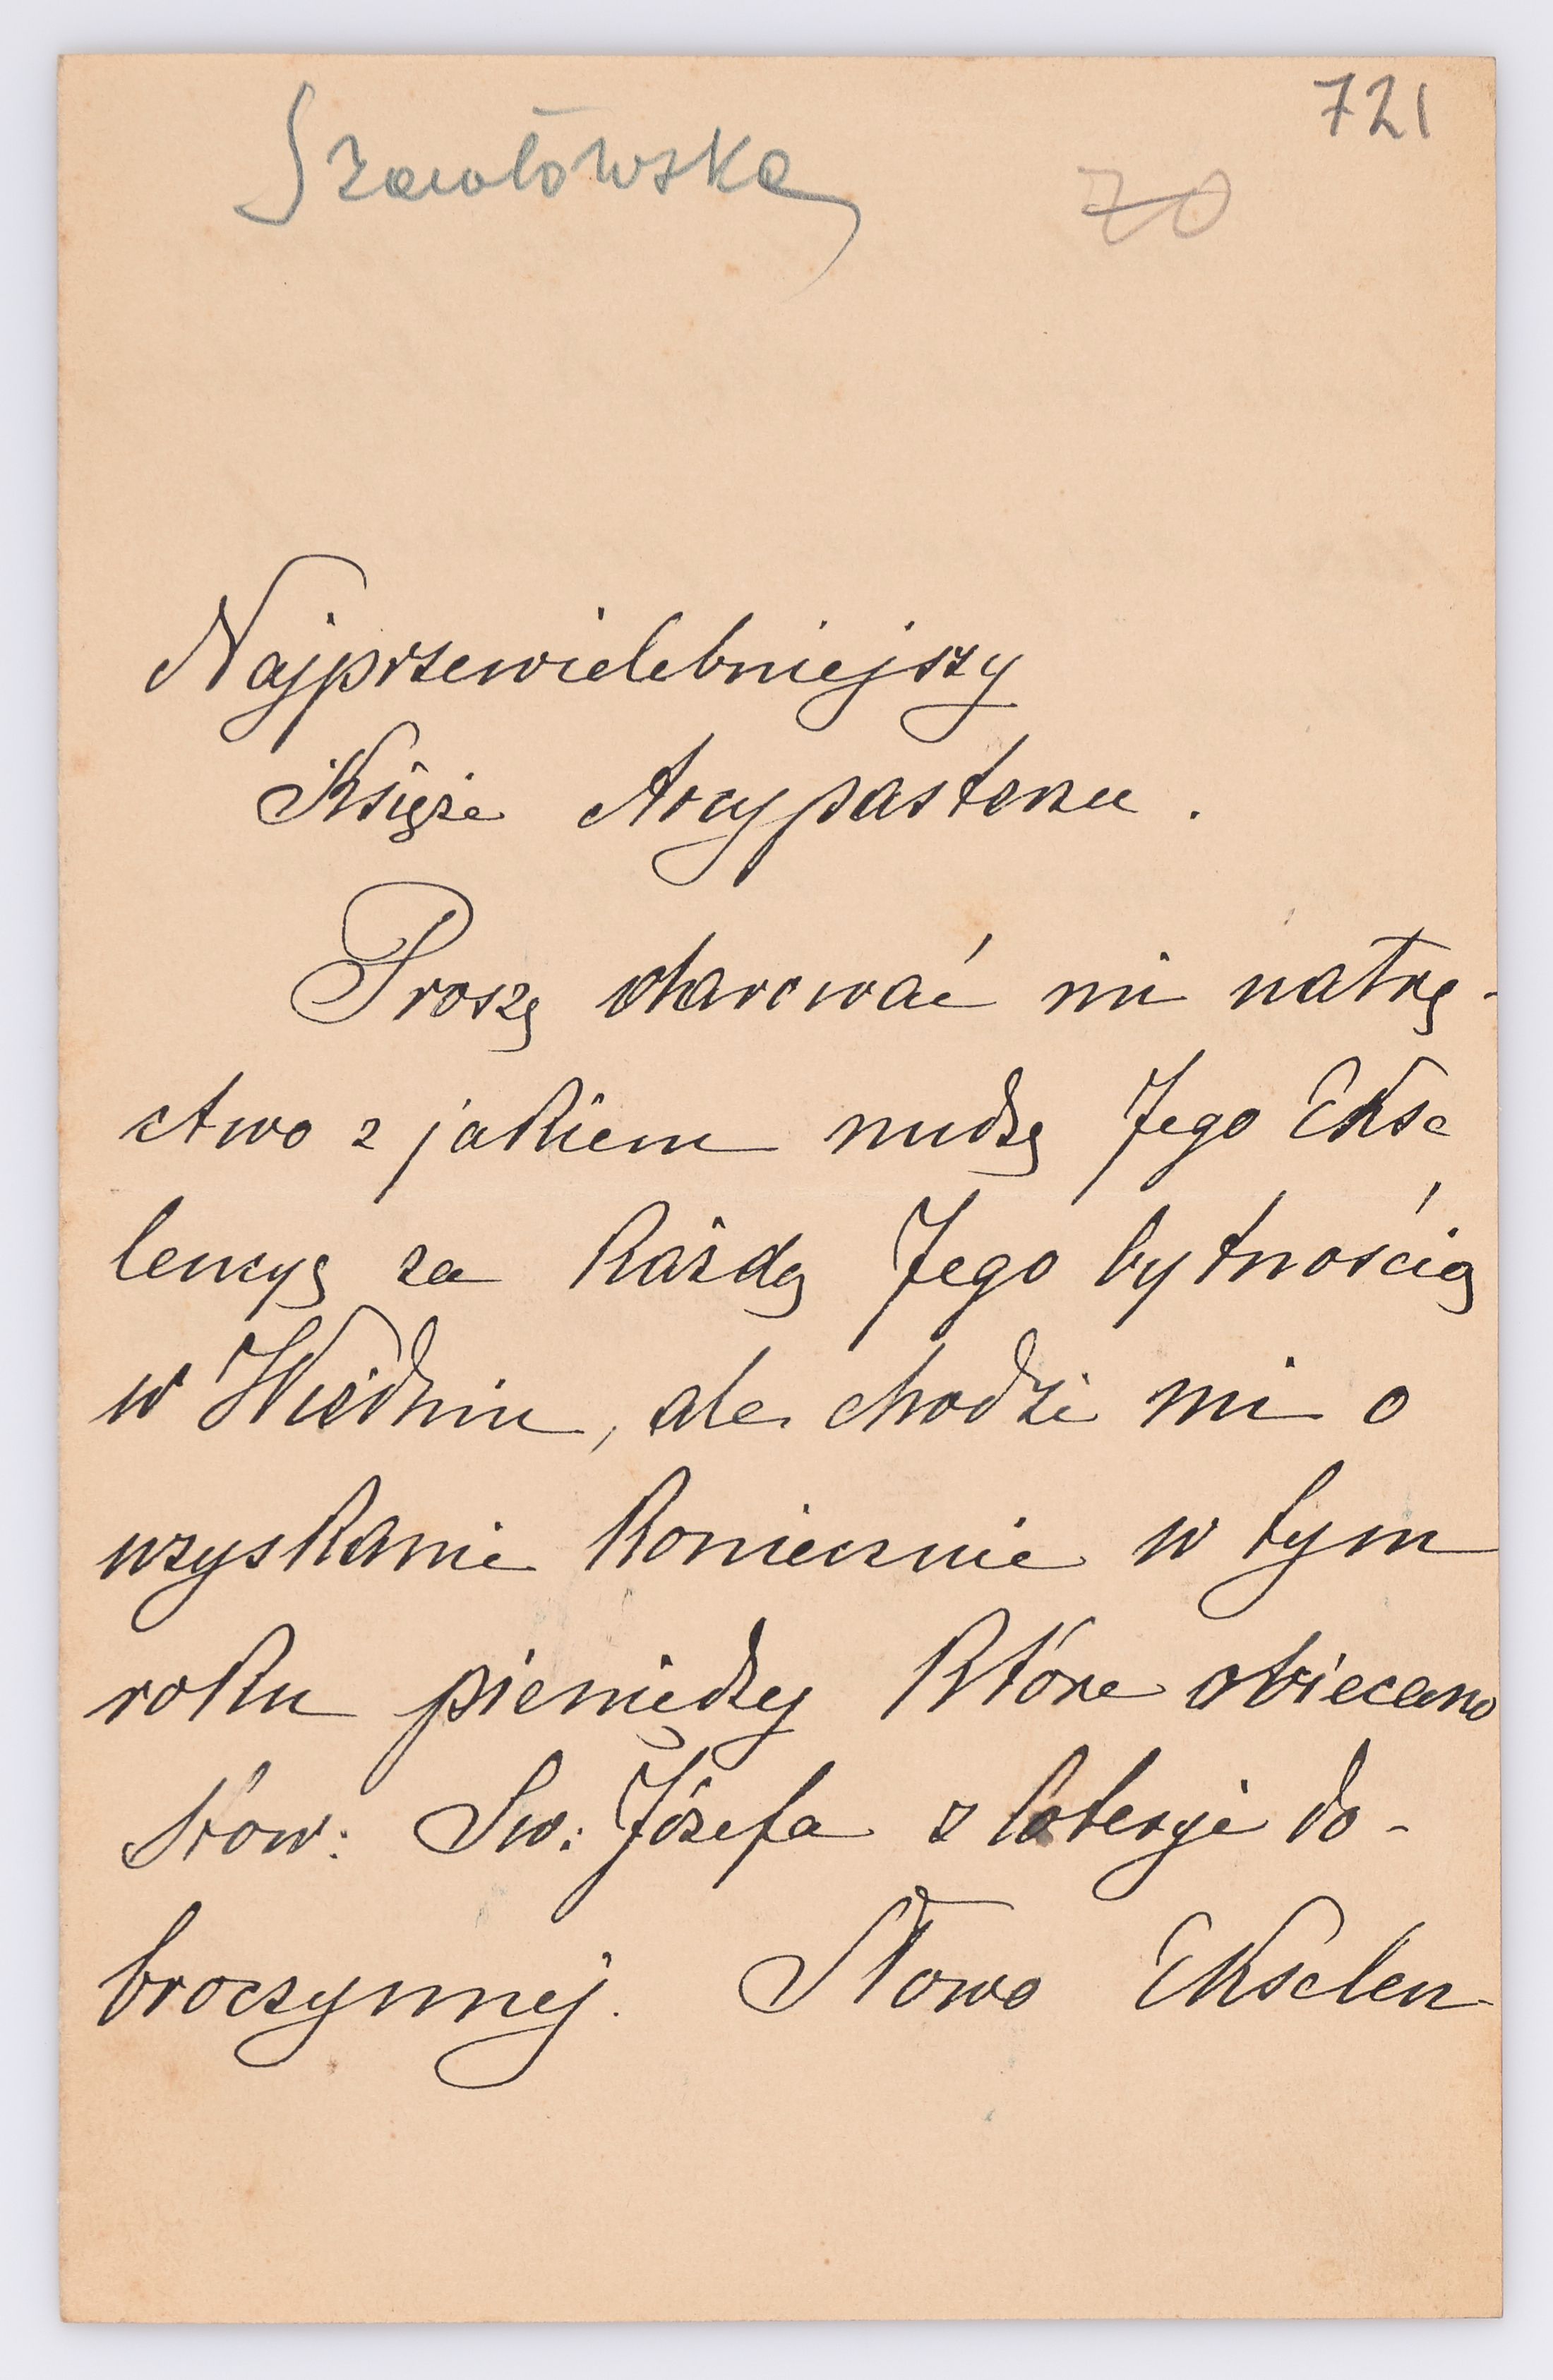 721
Szawłowska
70
Najprzewielebniejszy
Księże Arcypasterzu.
Proszę darować mi natrę-
ctwo z jakiem nudzę Jego Eksc
lencyę za każdą Jego bytnością
w Wiedniu, ale chodzi mi o
uzyskanie koniecznie w tym
roku pieniędzy które obiecano
Stow: Św: Józefa z loteryi do-
broczynnej. Słowo Ekscelen-